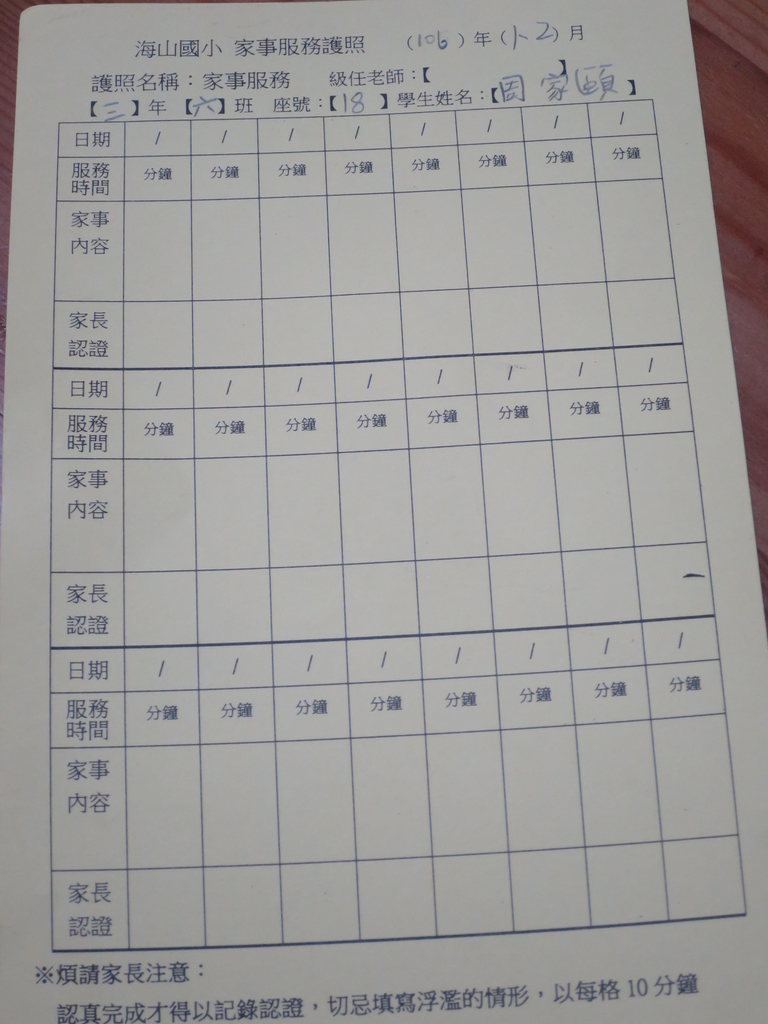 海山國小 家事服務護照 (106)年(1-2)月
護照名稱：家事服務 級任老師：【 】
【三】年【六】班 座號：【18】學生姓名：【周家頤】
日期 / / / / / / / /
服務時間 分鐘 分鐘 分鐘 分鐘 分鐘 分鐘 分鐘 分鐘
家事
內容
家長
認證
日期 / / / / / / / /
服務時間 分鐘 分鐘 分鐘 分鐘 分鐘 分鐘 分鐘 分鐘
家事
內容
家長
認證
日期 / / / / / / / /
服務時間 分鐘 分鐘 分鐘 分鐘 分鐘 分鐘 分鐘 分鐘
家事
內容
家長
認證
※煩請家長注意：
認真完成才得以記錄認證，切忌填寫浮濫的情形，以每格10分鐘